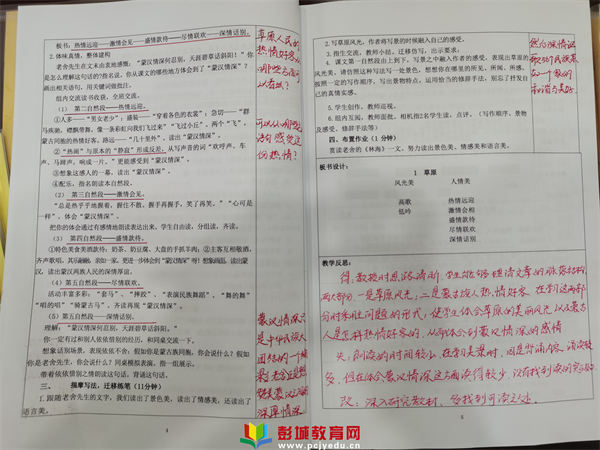 板书：热情远迎——激情会见——盛情款待——尽情联欢——深情话别。
2.体味真情，整体建构
老舍先生在文末由衷地感慨：“蒙汉情深何忍别，天涯碧草话斜阳！”你
是怎么理解这句话的?指名说，你从课文的哪些地方体会到了“蒙汉情深”？
画出相关语句，用关键词做批注。
组内交流读书收获，全班交流。
（1）第二自然段——热情远迎。
①人多——“男女老少”；盛装——“穿着各色的衣裳”；急切——“群
马疾驰，襟飘带舞，像一条彩虹向我们飞过来”“飞过小丘”，两个“飞”，
蒙古同胞的热情好客。路远——“几十里外”，读出“蒙汉情深”。
②“热闹”与原本的“静寂”形成反差。从写声音的词“欢呼声，车
声，马蹄声，响成一片。”更能感受到“蒙汉情深”。
③想象这感人的一幕，读出“蒙汉情深”。
④配乐，指名朗读本自然段。
（2）第三自然段——激情会见。
“总是热乎乎地握着，握住不散，握手再握手，笑了再笑。”“心可是
一样”，体会“蒙汉情深”。
把你的体会通过有感情地朗读表达出来，学生自由读，分组读，齐读。
（3）第四自然段——盛情款待。
①特色美食美酒款待：奶茶、奶豆腐、大盘的手抓羊肉；②主客互相敬酒，
读出蒙汉两族人民的深情厚谊。
（4）第五自然段——尽情联欢。
活动丰富多彩：“套马”、“摔跤”、“表演民族舞蹈”、“舞的舞”
“唱的唱”“骑蒙古马”，齐读再现，读出“蒙汉情深”。
（5）深情话别。
理解：“蒙汉情深何忍别，天涯碧草话斜阳。”
你一定有过和别人依依惜别的经历，和同桌交流一下。
想象话别场景，表现依依不舍：假如你是蒙古族同胞，你会说什么？假如
你是老舍先生，你会说什么？同桌模拟表演，指一组展示。
带着依依惜别之情朗读这句话，背诵这句话。
三、 描摩写法，迁移练笔（11分钟）
1.跟随老舍先生的文字，我们读出了景色美，读出了情感美，还读出了
语言美。
草原人民的
热情好客从
哪些方面可
以看出？
可以从哪些
语句感受这
份热情？
蒙汉情深
是中华民族人民
深厚情
4
2.写草原风光，作者将写景的时候融入自己的感受。
3.指生交流，教师小结，迁移仿写，出示要求：
4.课文第一自然段白上到下，写景之中融入作者的感受，表现出草原的
风光美，请仿照这种写法写一处景色，想想你在哪里的所见、所闻、所感，
按照一定的写作顺序，写出景物特点，运用恰当的修辞手法，别忘了抒发自
己的真情实感。
5.学生创作，教师巡视。
6.组内互阅，教师面批，相机指名2名学生读，点评。（写作顺序，景物
及感受，修辞手法等）
四、布置作业（1分钟）
赏读老舍的《林海》一文。努力读出景美美、情感美和语言美。
板书设计：
1 草原
风光美 人情美
高歌 热情远迎
低吟 激情会相
盛情款待
尽情联欢
深情话别
教学反思：
得：教授时思路清晰，学生能够理清文章的脉络结构，
两大部分，一是草原风光；二是蒙古族人热情好客，在到这两部
分时采用问题的形式，使学生体会草原的美丽风光以及蒙古
人是怎样热情好客的，从而体会到蒙汉情深的感情
失：朗读的时间较少，在学习美景时，因是背诵内容，诵读较
多，但在体会蒙汉情深这方面读得较少，没有找到读的突破口
改：深入研究教材，多找到可读之处。
5
彭城教育网
www.pcjyedu.com